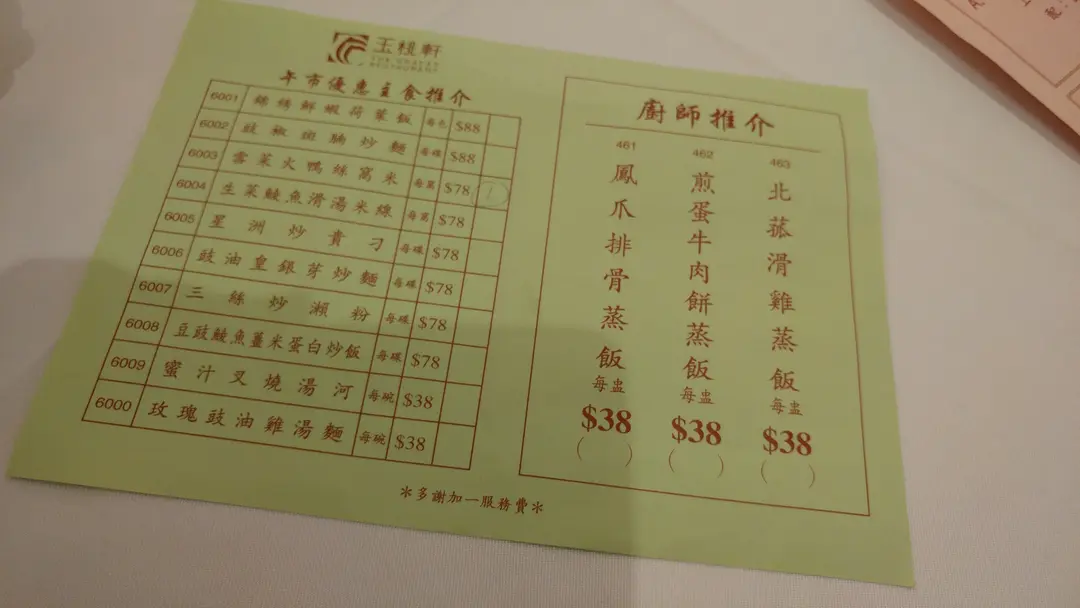 玉桃軒
RESTAURANT
午市優惠主食推介
6001 錦綉鮮蝦荷葉飯 每色 $88
6002 豉椒斑腩炒麵 每碟 $88
6003 雪菜火鴨絲窩米 每窩 $78 1
6004 生菜鯪魚滑湯米線 每窩 $78
6005 星洲炒貴刁 每碟 $78
6006 豉油皇銀芽炒麵 每碟 $78
6007 三絲炒瀨粉 每碟 $78
6008 豆豉鯪魚薑米蛋白炒飯 每碟 $78
6009 蜜汁叉燒湯河 每碗 $38
6000 玫瑰豉油雞湯麵 每碗 $38
廚師推介
461 鳳爪排骨蒸飯 每盅 $38 ( )
462 煎蛋牛肉餅蒸飯 每盅 $38 ( )
463 北菇滑雞蒸飯 每盅 $38 ( )
*多謝加一服務費*